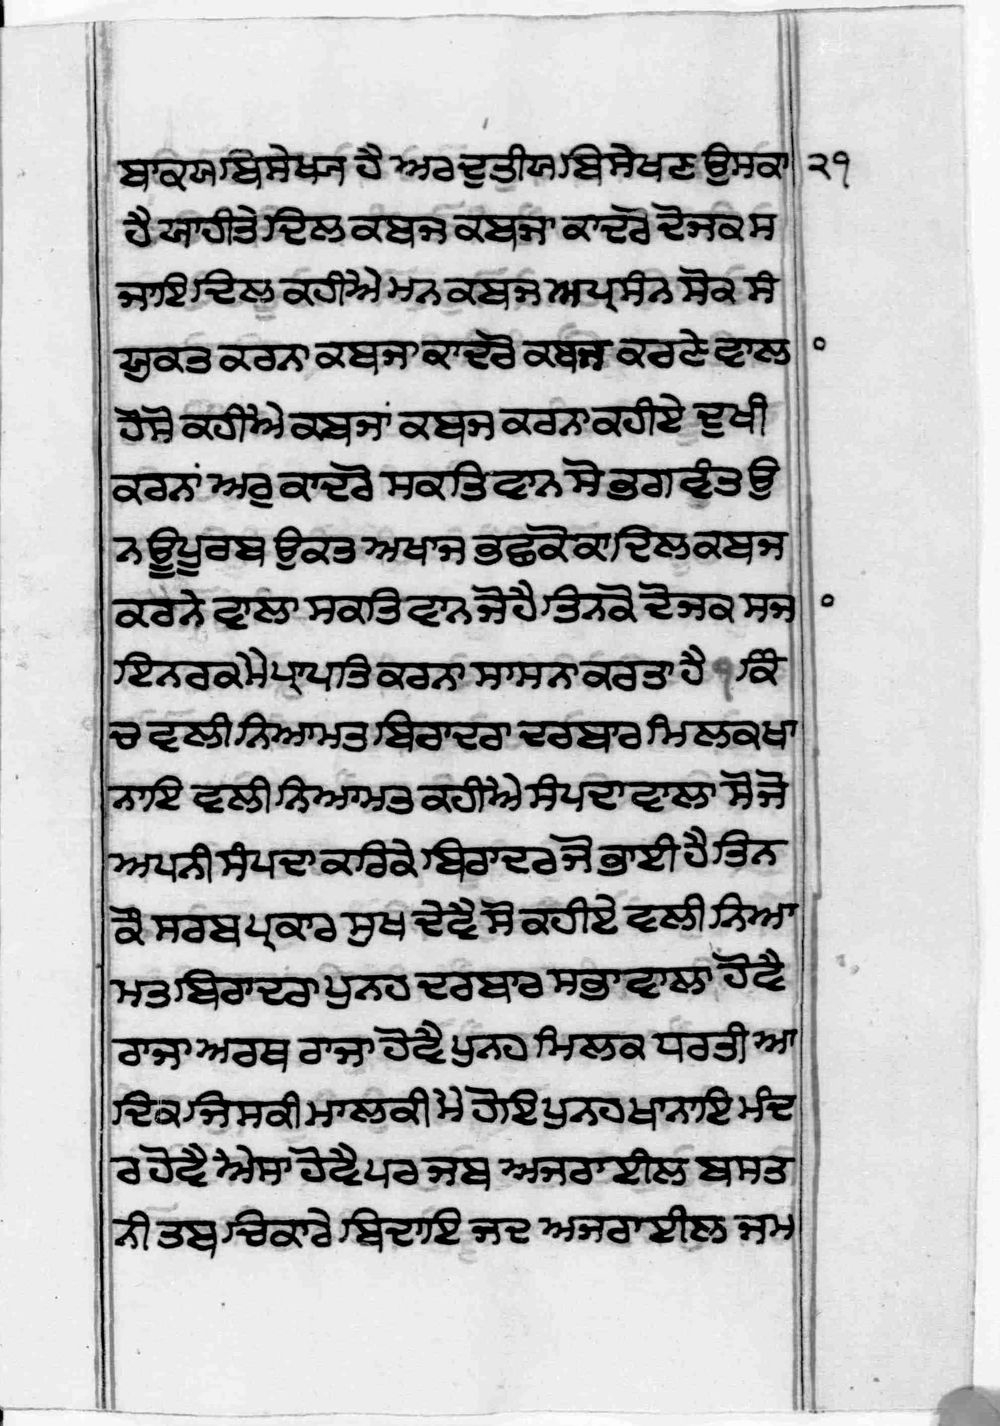 ਬਾਕਯ ਬਿਸੇਖਯ ਹੈ ਅਰ ਦੁਤੀਯ ਬਿਸੇਖਣ ਉਸਕਾ ੨੧
ਹੈ ਯਾਹੀਤੇ ਦਿਲ ਕਬਜ ਕਬਜਾ ਕਾਦਰੋ ਦੋਜਕ ਸ
ਜਾਇ ਦਿਲ ਕਹੀਐ ਮਨ ਕਬਜ ਅਪ੍ਰਸੰਨ ਸੋਕ ਸੰ
ਯੁਕਤ ਕਰਨਾ ਕਬਜਾ ਕਾਦਰੋ ਕਬਜ ਕਰਣੇ ਵਾਲ
ਹੋਸੋ ਕਹੀਐ ਕਬਜਾਂ ਕਬਜ ਕਰਨਾ ਕਹੀਏ ਦੁਖੀ
ਕਰਨਾਂ ਅਰੁ ਕਾਦਰੋ ਸਕਤਿ ਵਾਨ ਸੋ ਭਗਵੰਤ ਉ
ਨ ਊਪੂਰਬ ਉਕਤ ਅਖਾਜ ਭਛਕੋ ਕਾ ਦਿਲ ਕਬਜ
ਕਰਨੇ ਵਾਲਾ ਸਕਤਿ ਵਾਨ ਜੋ ਹੈ ਤਿਨਕੋ ਦੋਜਕ ਸਜ
ਇ ਨਰਕ ਮੇ ਪ੍ਰਾਪਤਿ ਕਰਨਾ ਸਾਸਨਾ ਕਰਤਾ ਹੈ ੧ ਕਿੰ
ਚ ਵਲੀ ਨਿਆਮਤ ਬਿਰਾਦਰਾ ਦਰਬਾਰ ਮਿਲਕ ਖਾ
ਨਾਇ ਵਲੀ ਨਿਆਮਤ ਕਹੀਐ ਸੰਪਦਾ ਵਾਲਾ ਸੋ ਜੋ
ਅਪਨੀ ਸੰਪਦਾ ਕਰਿਕੇ ਬਿਰਾਦਰ ਜੋ ਭਾਈ ਹੈ ਤਿਨ
ਕੋ ਸਰਬ ਪ੍ਰਕਾਰ ਸੁਖ ਦੇਵੈ ਸੋ ਕਹੀਏ ਵਲੀ ਨਿਆ
ਮਤ ਬਿਰਾਦਰਾ ਪੁਨਹ ਦਰਬਾਰ ਸਭਾ ਵਾਲਾ ਹੋਵੈ
ਰਾਜਾ ਅਰਥ ਰਾਜਾ ਹੋਵੈ ਪੁਨਹ ਮਿਲਕ ਧਰਤੀ ਆ
ਦਿਕ ਜਿਸਕੀ ਮਾਲਕੀ ਮੇ ਹੋਇ ਪੁਨਹ ਖਾਨਾਇ ਮੰਦ
ਰ ਹੋਵੈ ਐਸਾ ਹੋਵੈ ਪਰ ਜਬ ਅਜਰਾਈਲ ਬਸਤ
ਨੀ ਤਬ ਚਿਕਾਰੇ ਬਿਦਾਇ ਜਦ ਅਜਰਾਈਲ ਜਮ